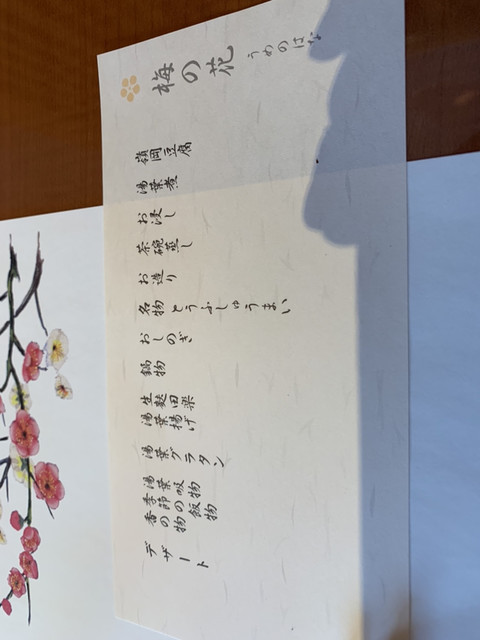 梅の花
うめのはな
嶺岡豆腐
湯葉煮
お浸し
茶碗蒸し
お造り
名物 とうふしゅうまい
おしのぎ
鍋物
生麩田楽
湯葉揚げ
湯葉グラタン
湯葉吸物
季節の飯物
香の物
デザート